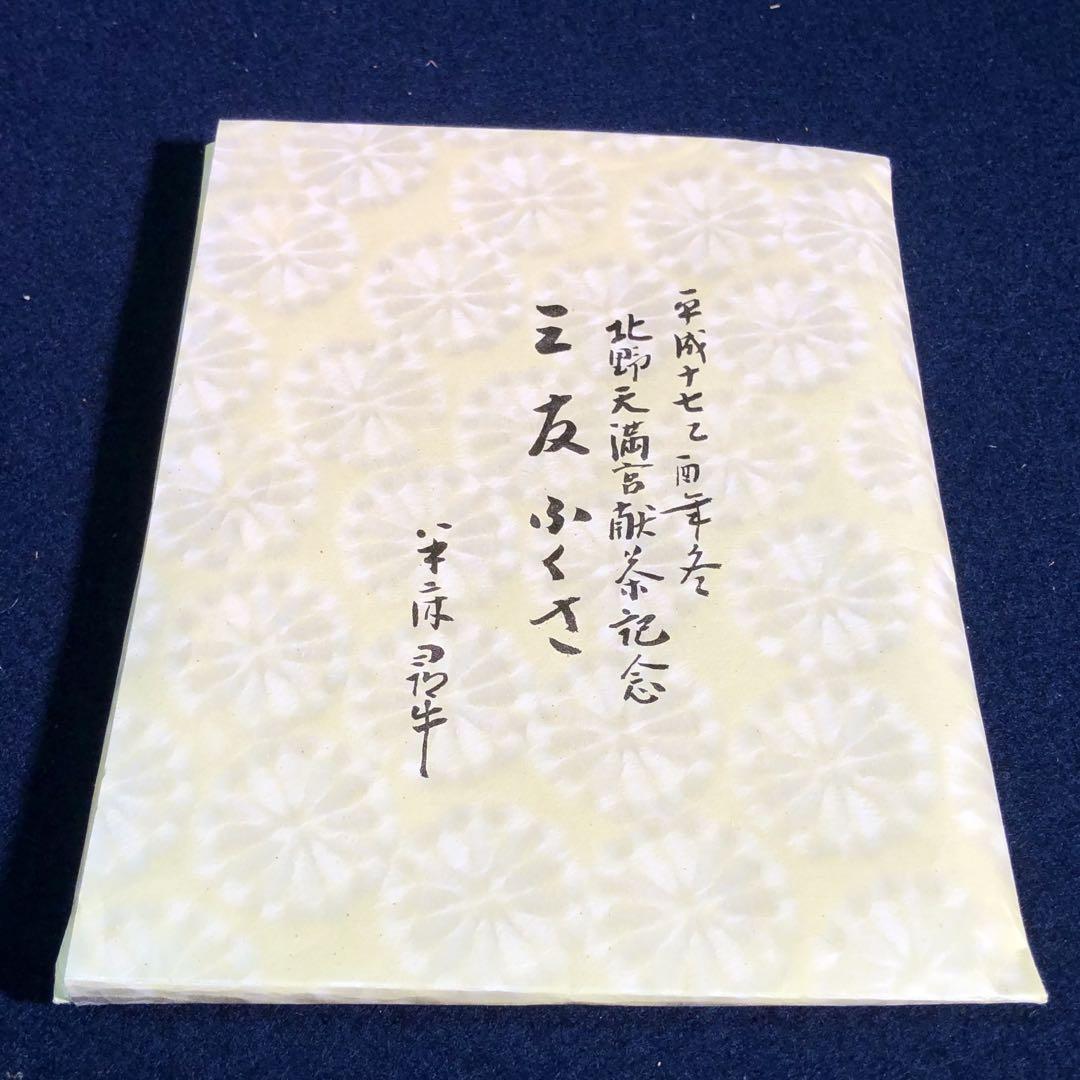 平成十七乙酉年冬
北野天満宮献茶記念
三友ふくさ
半床尋牛